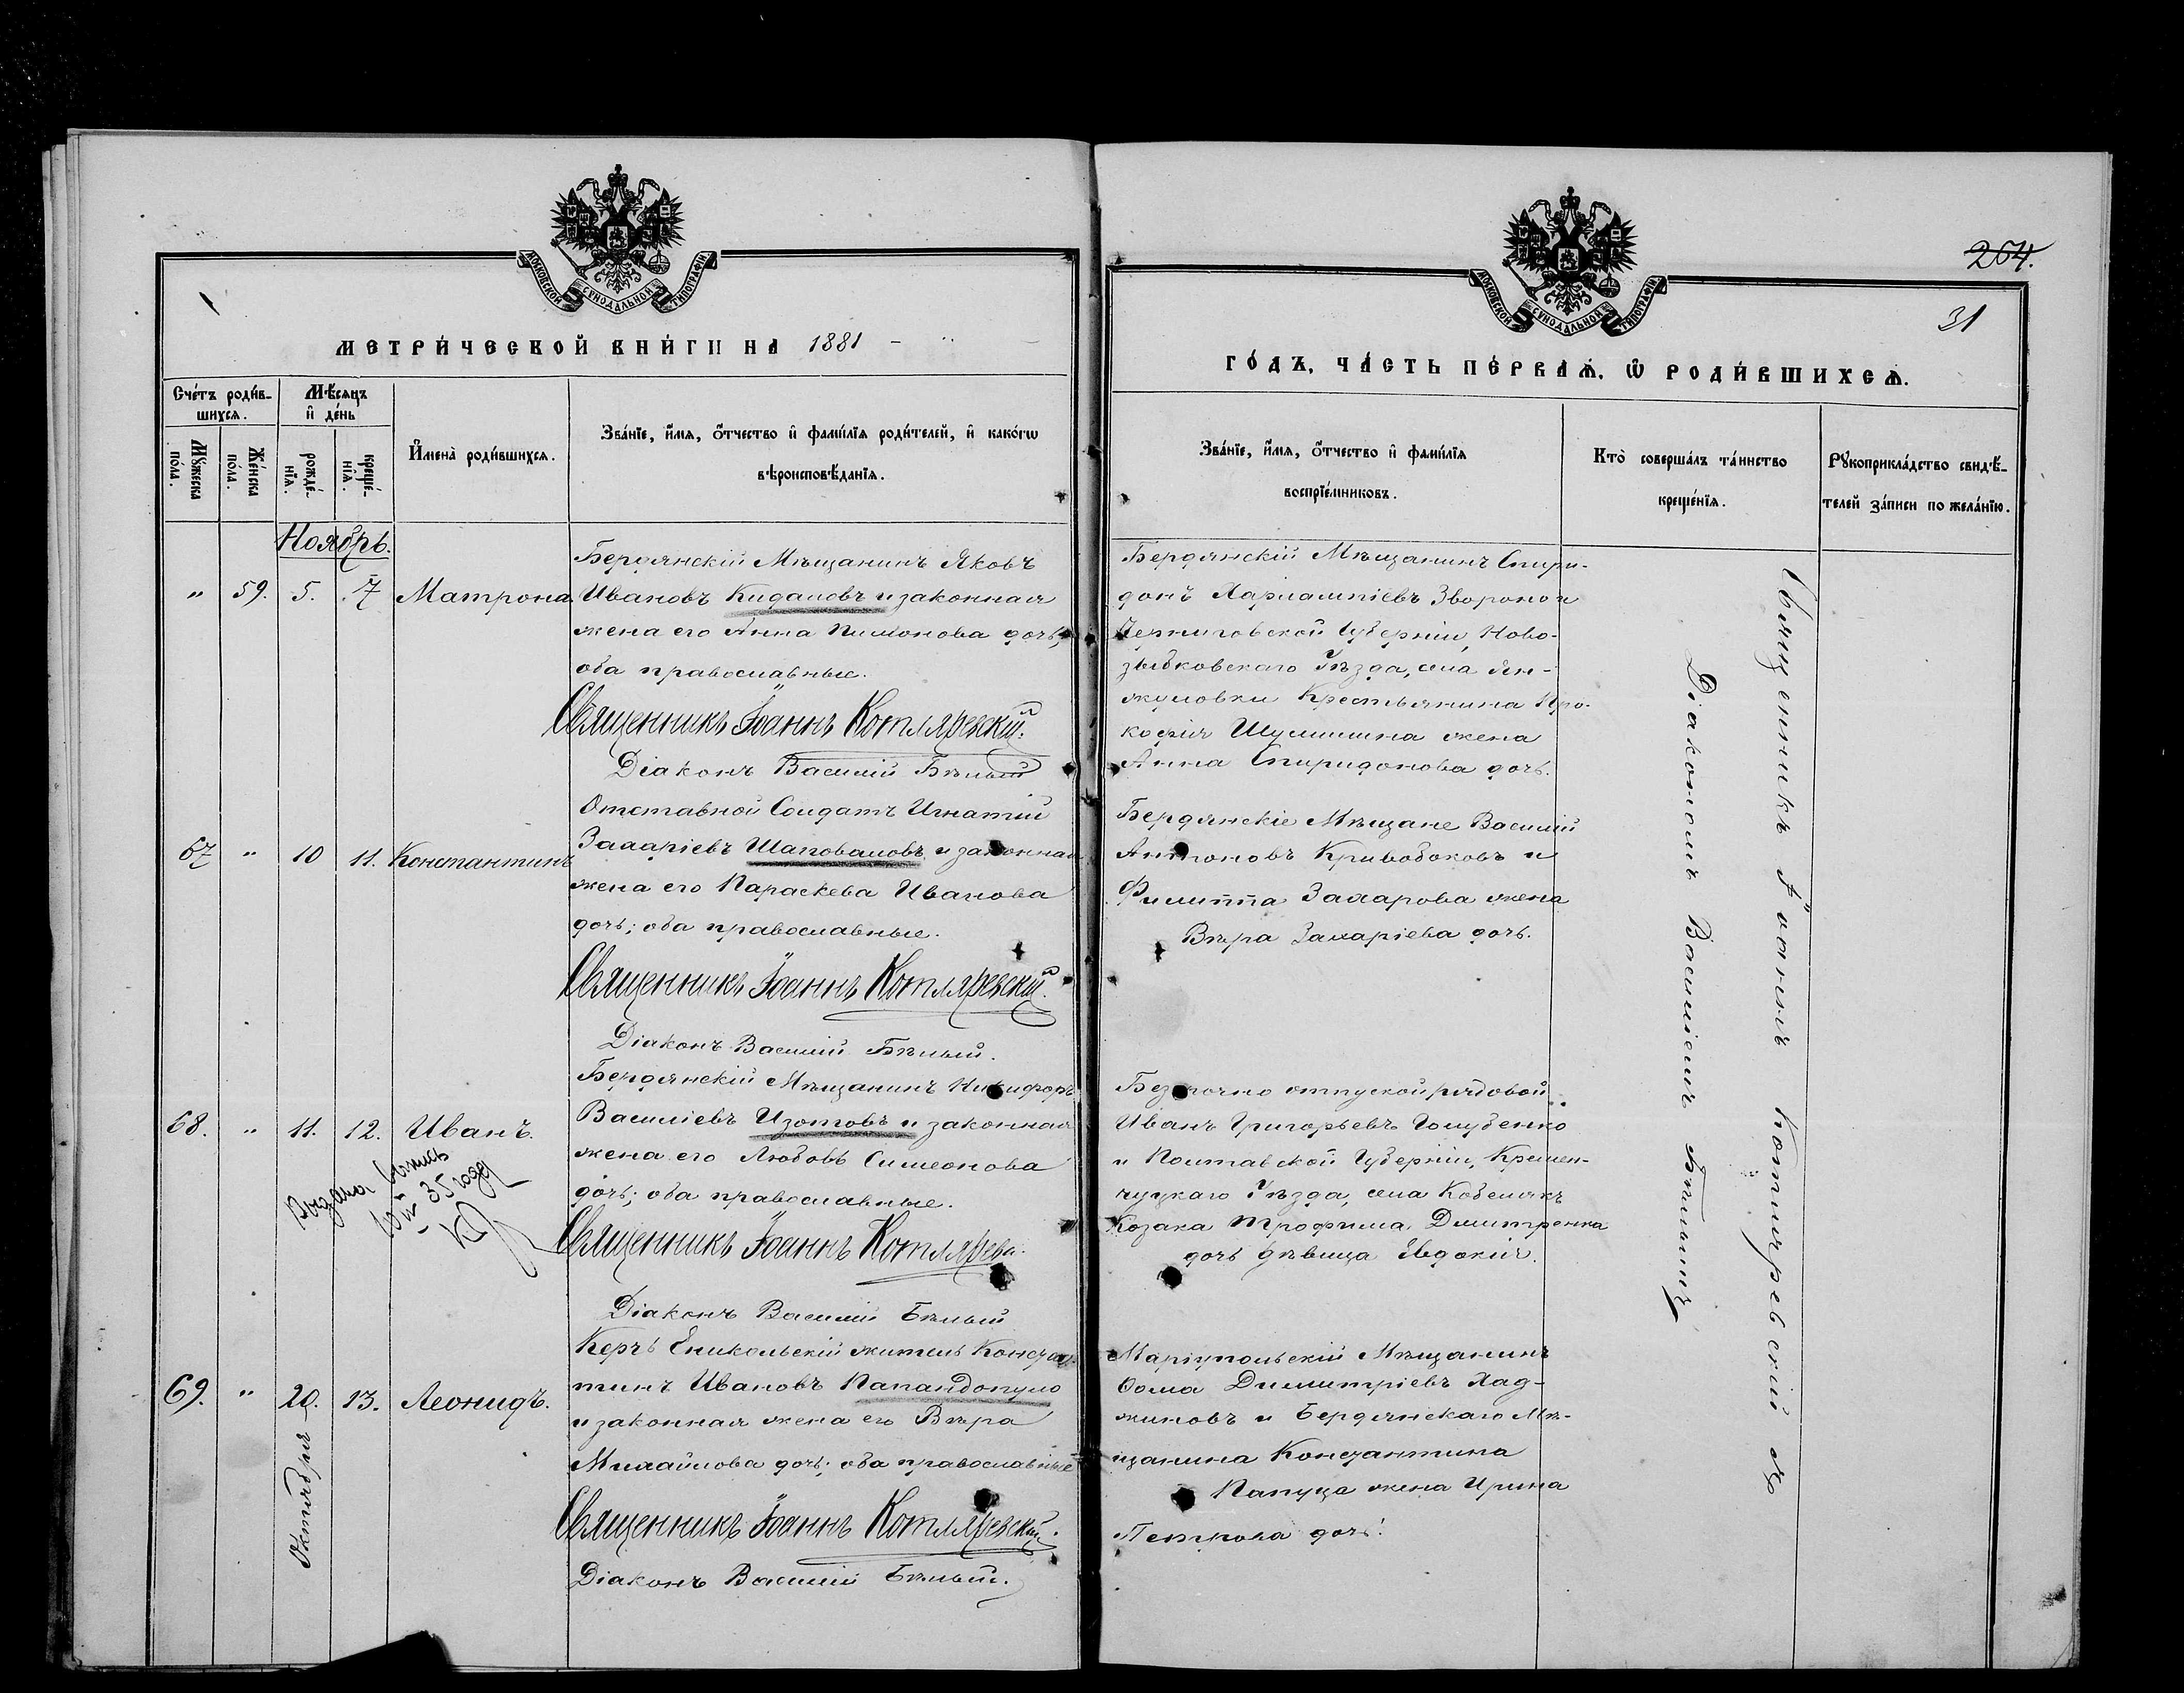 МОСКОВСКОЙ СѴНОДАЛЬНОЙ ТИПОГРАФІИ
МЕТРИ́ЧЕСКОЙ КНИ́ГИ НА 1881
Сче́тъ роди́в-
шихсѧ.
Мꙋ́жеска
по́ла.
Же́нска
по́ла.
Мѣ́сѧцъ
и҆ де́нь
рожде́-
нїѧ.
креще́-
нїѧ.
И҆мена̀ роди́вшихсѧ.
Зва́нїе, и҆́мѧ, ѻ҆́тчество и҆ фами́лїѧ роди́телей, и҆ како́гѡ
вѣроисповѣ́данїѧ.
Ноябрь.
" 59. 5. 7 Матрона.
Бердянскій Мѣщанинъ Яковъ
Ивановъ Кидаловъ и законная
жена его Анна Пимонова дочь;
оба православные.
Священникъ Іоаннъ Котляревскій.
Діаконъ Василій Бѣлый
67 " 10 11. Константинъ
Отставной Солдатъ Игнатій
Захаріевъ Шаповаловъ и законная
жена его Параскева Иванова
дочь; оба православные.
Священникъ Іоаннъ Котляревскій.
Діаконъ Василій Бѣлый.
68. " 11. 12. Иванъ.
Выдана
35 года
Бердянскій Мѣщанинъ Никифоръ
Василіевъ Изотовъ и законная
жена его Любовь Симеонова
дочь; оба православные.
Священникъ Іоаннъ Котляревс.
Діаконъ Василій Бѣлый
69. " 20. 13. Леонидъ.
Октября
Керчь Еникольскій житель Констан
тинъ Ивановъ Папандопуло
и законная жена его Вѣра
Михайлова дочь; оба православные
Священникъ Іоаннъ Котляревскій.
Діаконъ Василій Бѣлый.
МОСКОВСКОЙ СѴНОДАЛЬНОЙ ТИПОГРАФІИ
264.
31
ГО́ДЪ, ЧА́СТЬ ПЕ́РВАѦ, Ѡ҆ РОДИ́ВШИХСѦ.
Зва́нїе, и҆́мѧ, ѻ҆́тчество и҆ фами́лїѧ
воспрїе́мниковъ.
Кто̀ соверша́лъ та́инство
креще́нїѧ.
Рꙋкоприкла́дство свидѣ́-
телей за́писи по жела́нїю.
Бердянскій Мѣщанинъ Спири-
донъ Харлампіевъ Звороно и
Черниговской Губерніи, Ново-
зыбковскаго Уѣзда, села Ян-
жуловки Крестьянина Про-
кофія Шумилина жена
Анна Спиридонова дочь.
Бердянскіе Мѣщане Василій
Антоновъ Кривобоковъ и
Филиппа Захарова жена
Вѣра Захаріева дочь.
Безсрочно отпуской рядовой
Иванъ Григорьевъ Голубенко
и Полтавской Губерніи, Кремен-
чугскаго Уѣзда, села Кобелякъ
Козака Трофима Димитренка
дочь дѣвица Евдокія.
Маріупольскій Мѣщанинъ
Ѳома Димитріевъ Хад-
жиновъ и Бердянскаго Мѣ-
щанина Константина
Папуца жена Ирина
Петрова дочь.
Священникъ Іоаннъ Котляревскій съ
Діакономъ Василіемъ Бѣлымъ